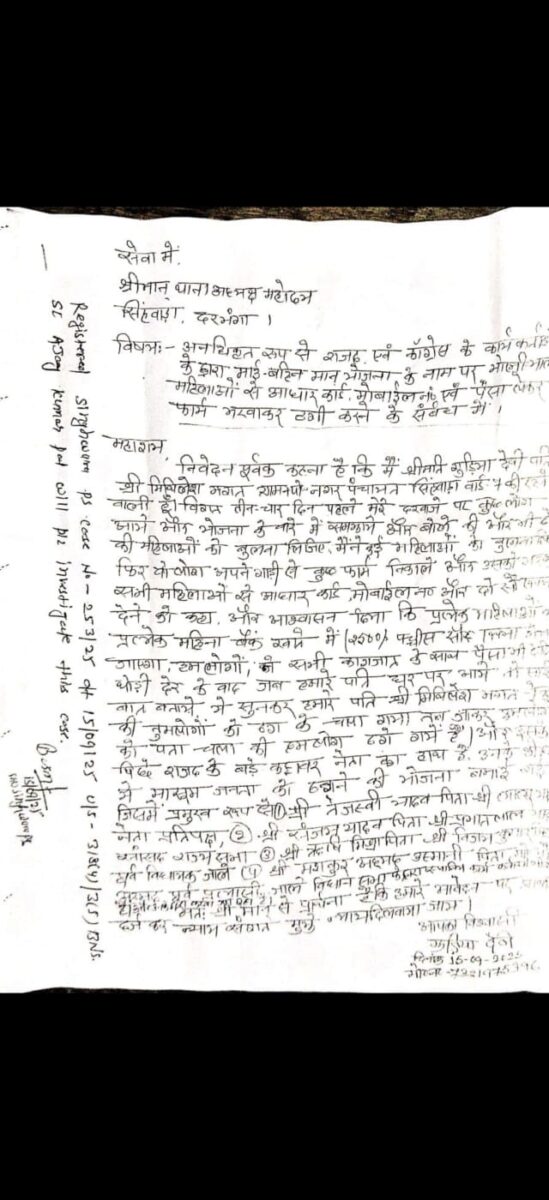 सेवा में,
श्रीमान् थाना अध्यक्ष महोदय
सिंहवाड़ा, दरभंगा ।
विषय:- अनधिकृत रूप से राजद एवं कॉंग्रेस के कार्यकर्ता
के द्वारा माई-बहिन मान योजना के नाम पर भोली भाली
महिलाओं से आधार कार्ड, मोबाईल नं० एवं पैसा लेकर
फार्म भरवाकर ठगी करने के संबंध में ।
महाशय,
निवेदन पूर्वक कहना है कि मैं श्रीमति गुड़िया देवी पति
श्री मिथिलेश भगत नगर पंचायत सिंहवाड़ा वार्ड की रहने
वाली हूँ। विगत तीन-चार दिन पहले मेरे दरवाजे पर कुछ लोग
आये और योजना के बारे में समझाने और बोले की और भी
की महिलाओं को बुलवा लिजिए, मैंने कई महिलाओं को
फिर वो लोग अपने गाड़ी से कुछ फार्म निकाले और उसको
सभी महिलाओं से आधार कार्ड मोबाईल नं० और दो सौ
देने को कहा, और आश्वासन दिया कि प्रत्येक महिलाओं के
प्रत्येक महिना बैंक खाते में (2500) पच्चीस सौ
जाएगा, हमलोगों ने सभी कागजात के साथ पैसा भी
थोड़ी देर के बाद जब हमारे पति घर पर आये तो
बात बताये तो सुनकर हमारे पति श्री मिथिलेश भगत ने
की तुमलोगों को ठग के चला गया तब जाकर हमलोगों
को पता चला की हमलोग ठगे गये हैं। और इसके
पिछे राजद के बड़े कद्दावर नेता का हाथ है, उनके
से मासूम जनता को ठगने की योजना बनाई
जिसमें प्रमुख रूप से ① श्री तेजस्वी यादव पिता श्री लालू
नेता प्रतिपक्ष, ② श्री संजय यादव पिता श्री
राज्य सभा ③ श्री ऋषि मिश्रा पिता श्री विजय कुमार
पूर्व विधायक जाले ④ श्री मशकुर अहमद उस्मानी पिता
पूर्व प्रत्याशी जाले विधान सभा
अतः श्री मान से प्रार्थना है कि हमारे आवेदन पर
दर्ज कर न्याय संगत मुझे न्याय दिलवाया जाय।
आपका विश्वासी
गुड़िया देवी
दिनांक 15-09-2025
Registered Singhwara PS case No - 253/25 dt 15/09/25 u/s - 318(4)/3(5) BNS.
SI Ajay Kumar will pl investigate this case.